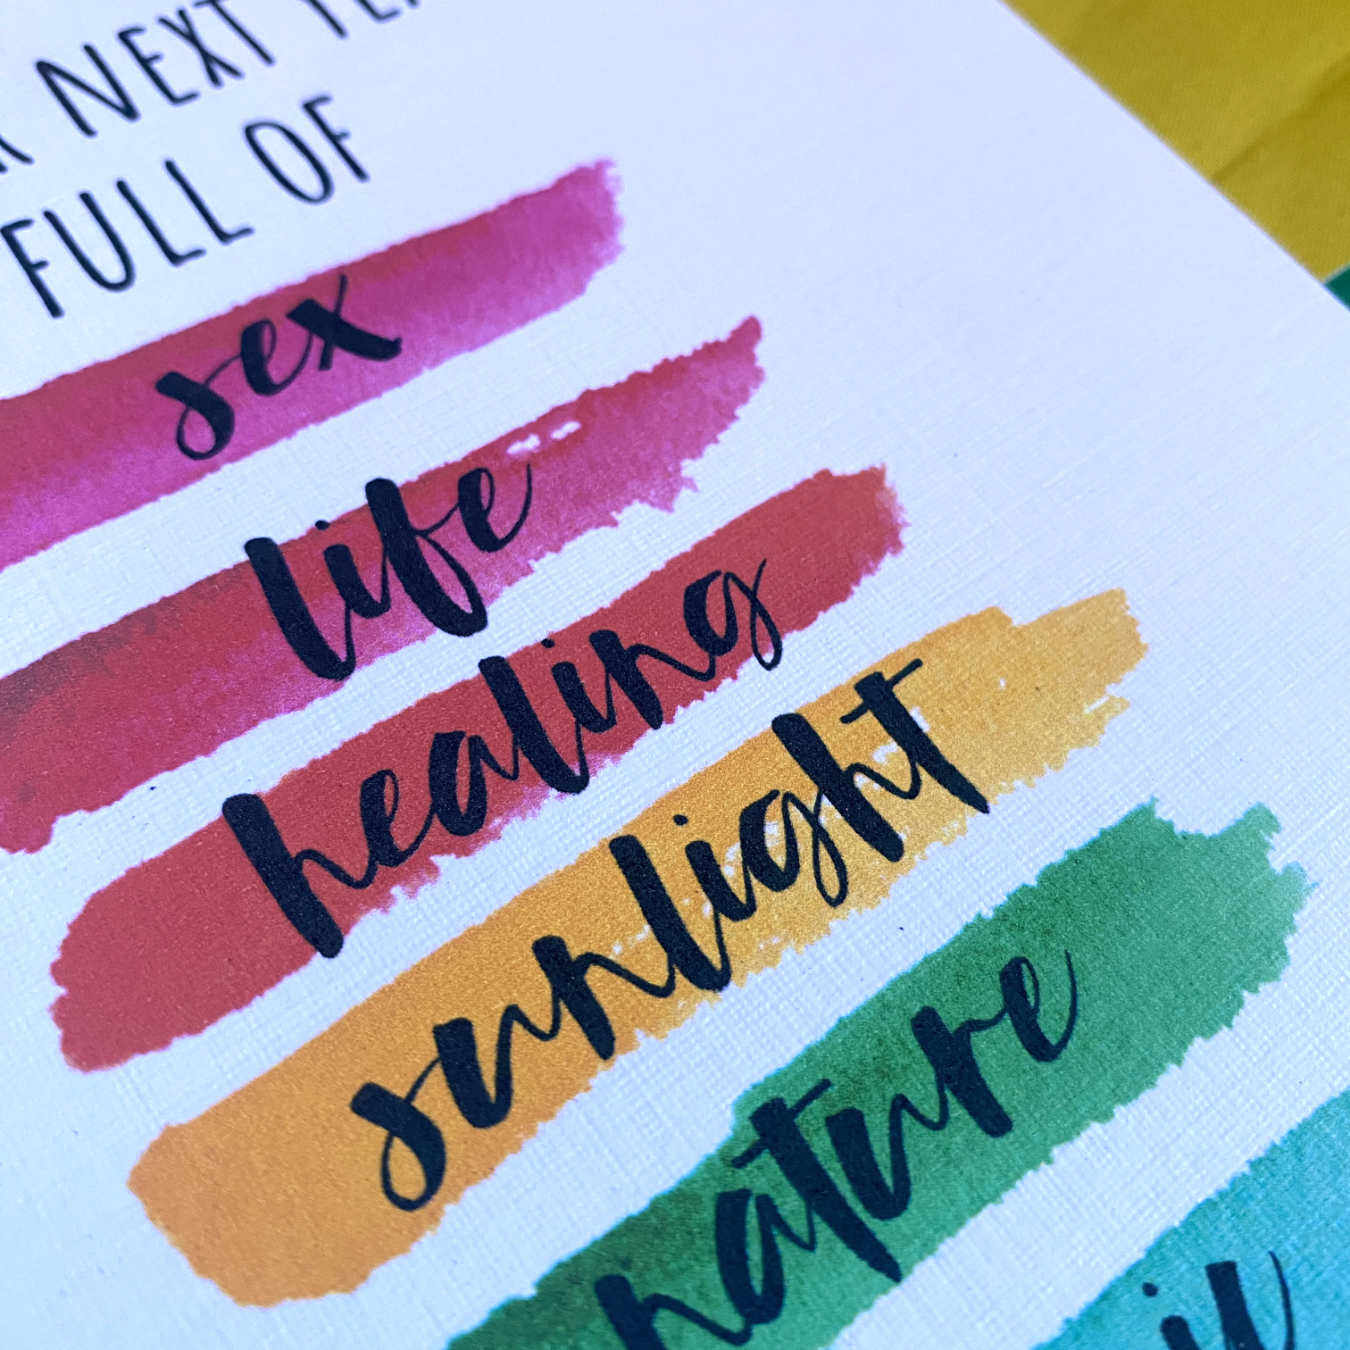 NEXT
FULL OF
sex
life
healing
sunlight
nature